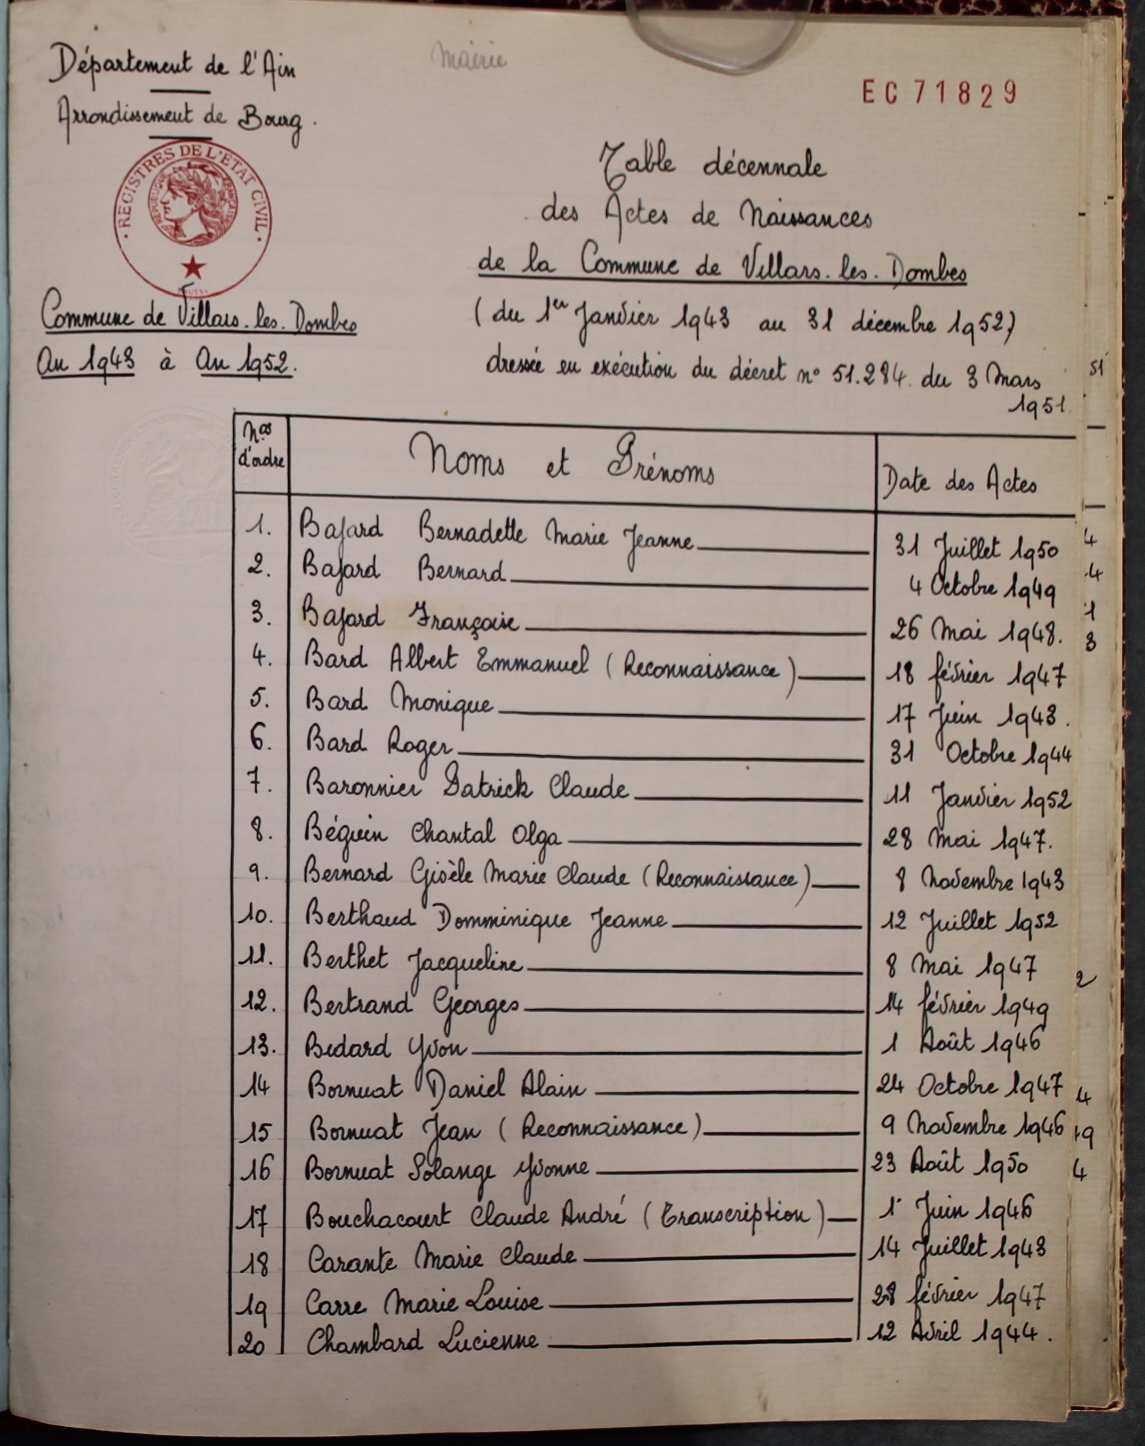 Mairie
Département de l'Ain
Arrondissement de Bourg.
EC 71829
REGISTRES DE L'ETAT CIVIL
Table décennale
des Actes de Naissances
de la Commune de Villars.les.Dombes
(du 1er Janvier 1943 au 31 décembre 1952)
dressée en exécution du décret n° 51.284 du 3 Mars
1951.
Commune de Villars.les.Dombes
An 1943 à An 1952.
Nos d'ordre Noms et Prénoms Date des Actes
1. Bajard Bernadette Marie Jeanne 31 Juillet 1950
2. Bajard Bernard 4 Octobre 1949
3. Bajard Françoise 26 Mai 1948.
4. Bard Albert Emmanuel (Reconnaissance) 18 février 1947
5. Bard Monique 17 Juin 1943.
6. Bard Roger 31 Octobre 1944
7. Baronnier Patrick Claude 11 Janvier 1952
8. Béguin Chantal Olga 28 Mai 1947.
9. Bernard Gisèle Marie Claude (Reconnaissance) 8 Novembre 1943
10. Berthaud Domminique Jeanne 12 Juillet 1952
11. Berthet Jacqueline 8 Mai 1947
12. Bertrand Georges 14 février 1949
13. Bidard Yvon 1 Août 1946
14 Bornuat Daniel Alain 24 Octobre 1947
15 Bornuat Jean (Reconnaissance) 9 Novembre 1946
16 Bornuat Solange Yvonne 23 Août 1950
17 Bouchacourt Claude André (Transcription) 1 Juin 1946
18 Carante Marie Claude 14 Juillet 1943
19 Carre Marie Louise 28 février 1947
20 Chambard Lucienne 12 Avril 1944.